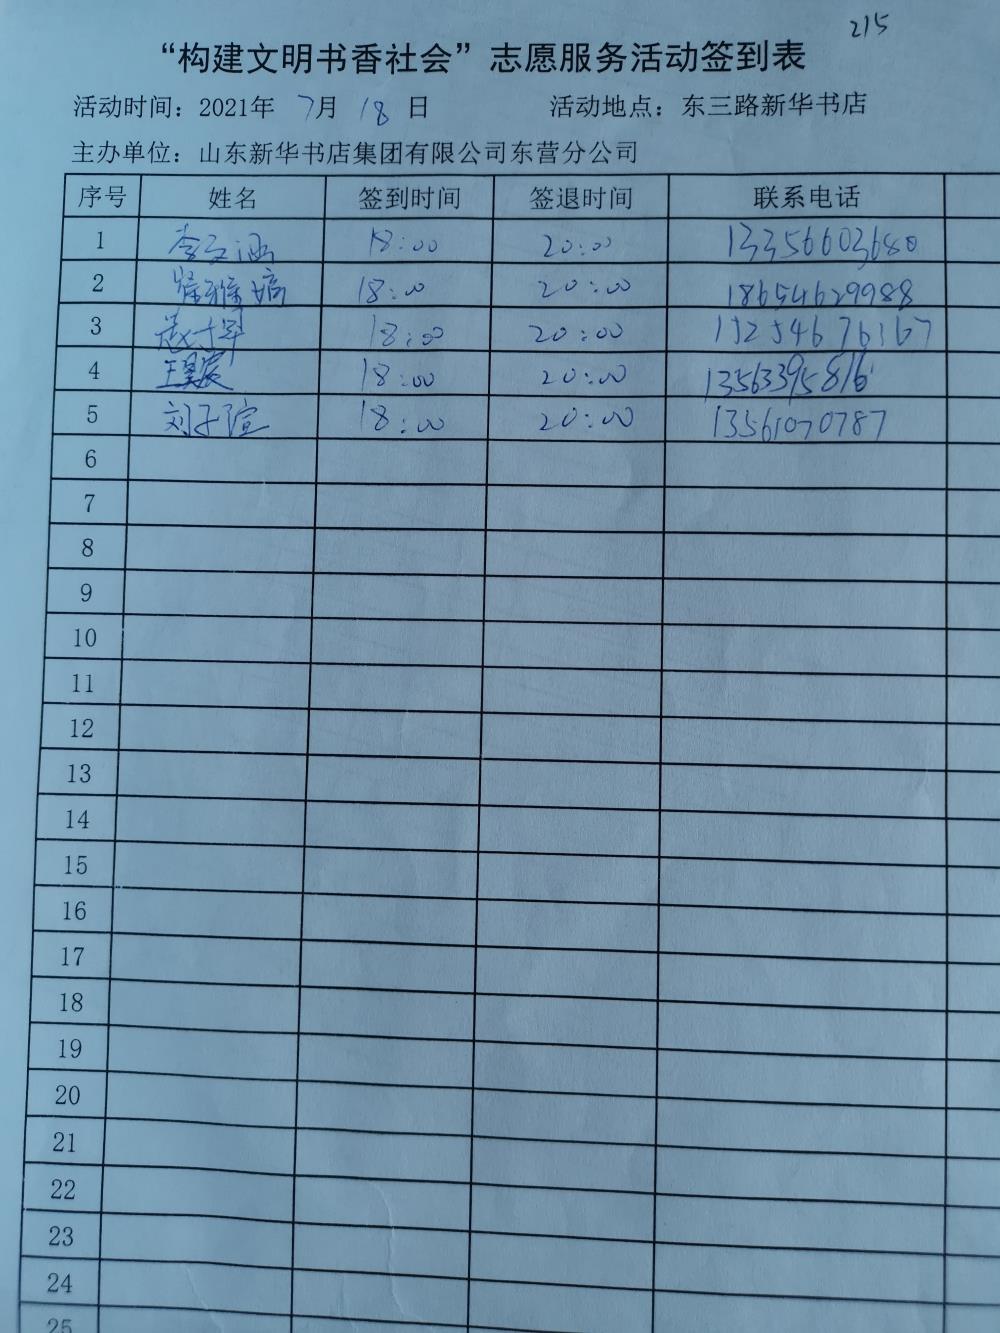 215
“构建文明书香社会”志愿服务活动签到表
活动时间：2021年 7月 18 日 活动地点：东三路新华书店
主办单位：山东新华书店集团有限公司东营分公司
序号 姓名 签到时间 签退时间 联系电话
1 李文涵 18:00 20:00 13356603680
2 18:00 20:00 18654629988
3 赵 18:00 20:00
4 王昊宸 18:00 20:00 13563395816
5 刘子瑄 18:00 20:00 13561070787
6
7
8
9
10
11
12
13
14
15
16
17
18
19
20
21
22
23
24
25